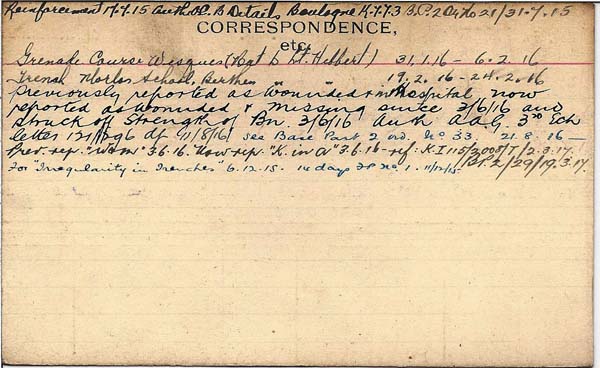 Reinforcement 17.7.15 Auth O.C. B Details Boulogne K.7.7.3 B.C.2 21/31.7.15
CORRESPONDENCE,
etc.
Grenade Course Wesques (Rgt b Lt. Hebbert) 31.1.16 - 6.2.16
Trench Mortar School, Berthen 19.2.16 - 24.2.16
Previously reported as wounded & in Hospital, now
reported as Wounded & Missing since 3/6/16 and
Struck off Strength of Bn. 3/6/16 Auth A.A.G. 3rd Ech
letter df 11/8/16 See Base Part 2 ord. No 33. 21.8.16 —
Prev. rep. "W & M" 3.6.16. Now rep. "K. in A" 3.6.16 - ref. K I 115/2008/T/2.3.17.
B.P.2/29/19.3.17.
For "Irregularity in Trenches" 6.12.15. 14 days F.P. No. 1. 11/12/15.